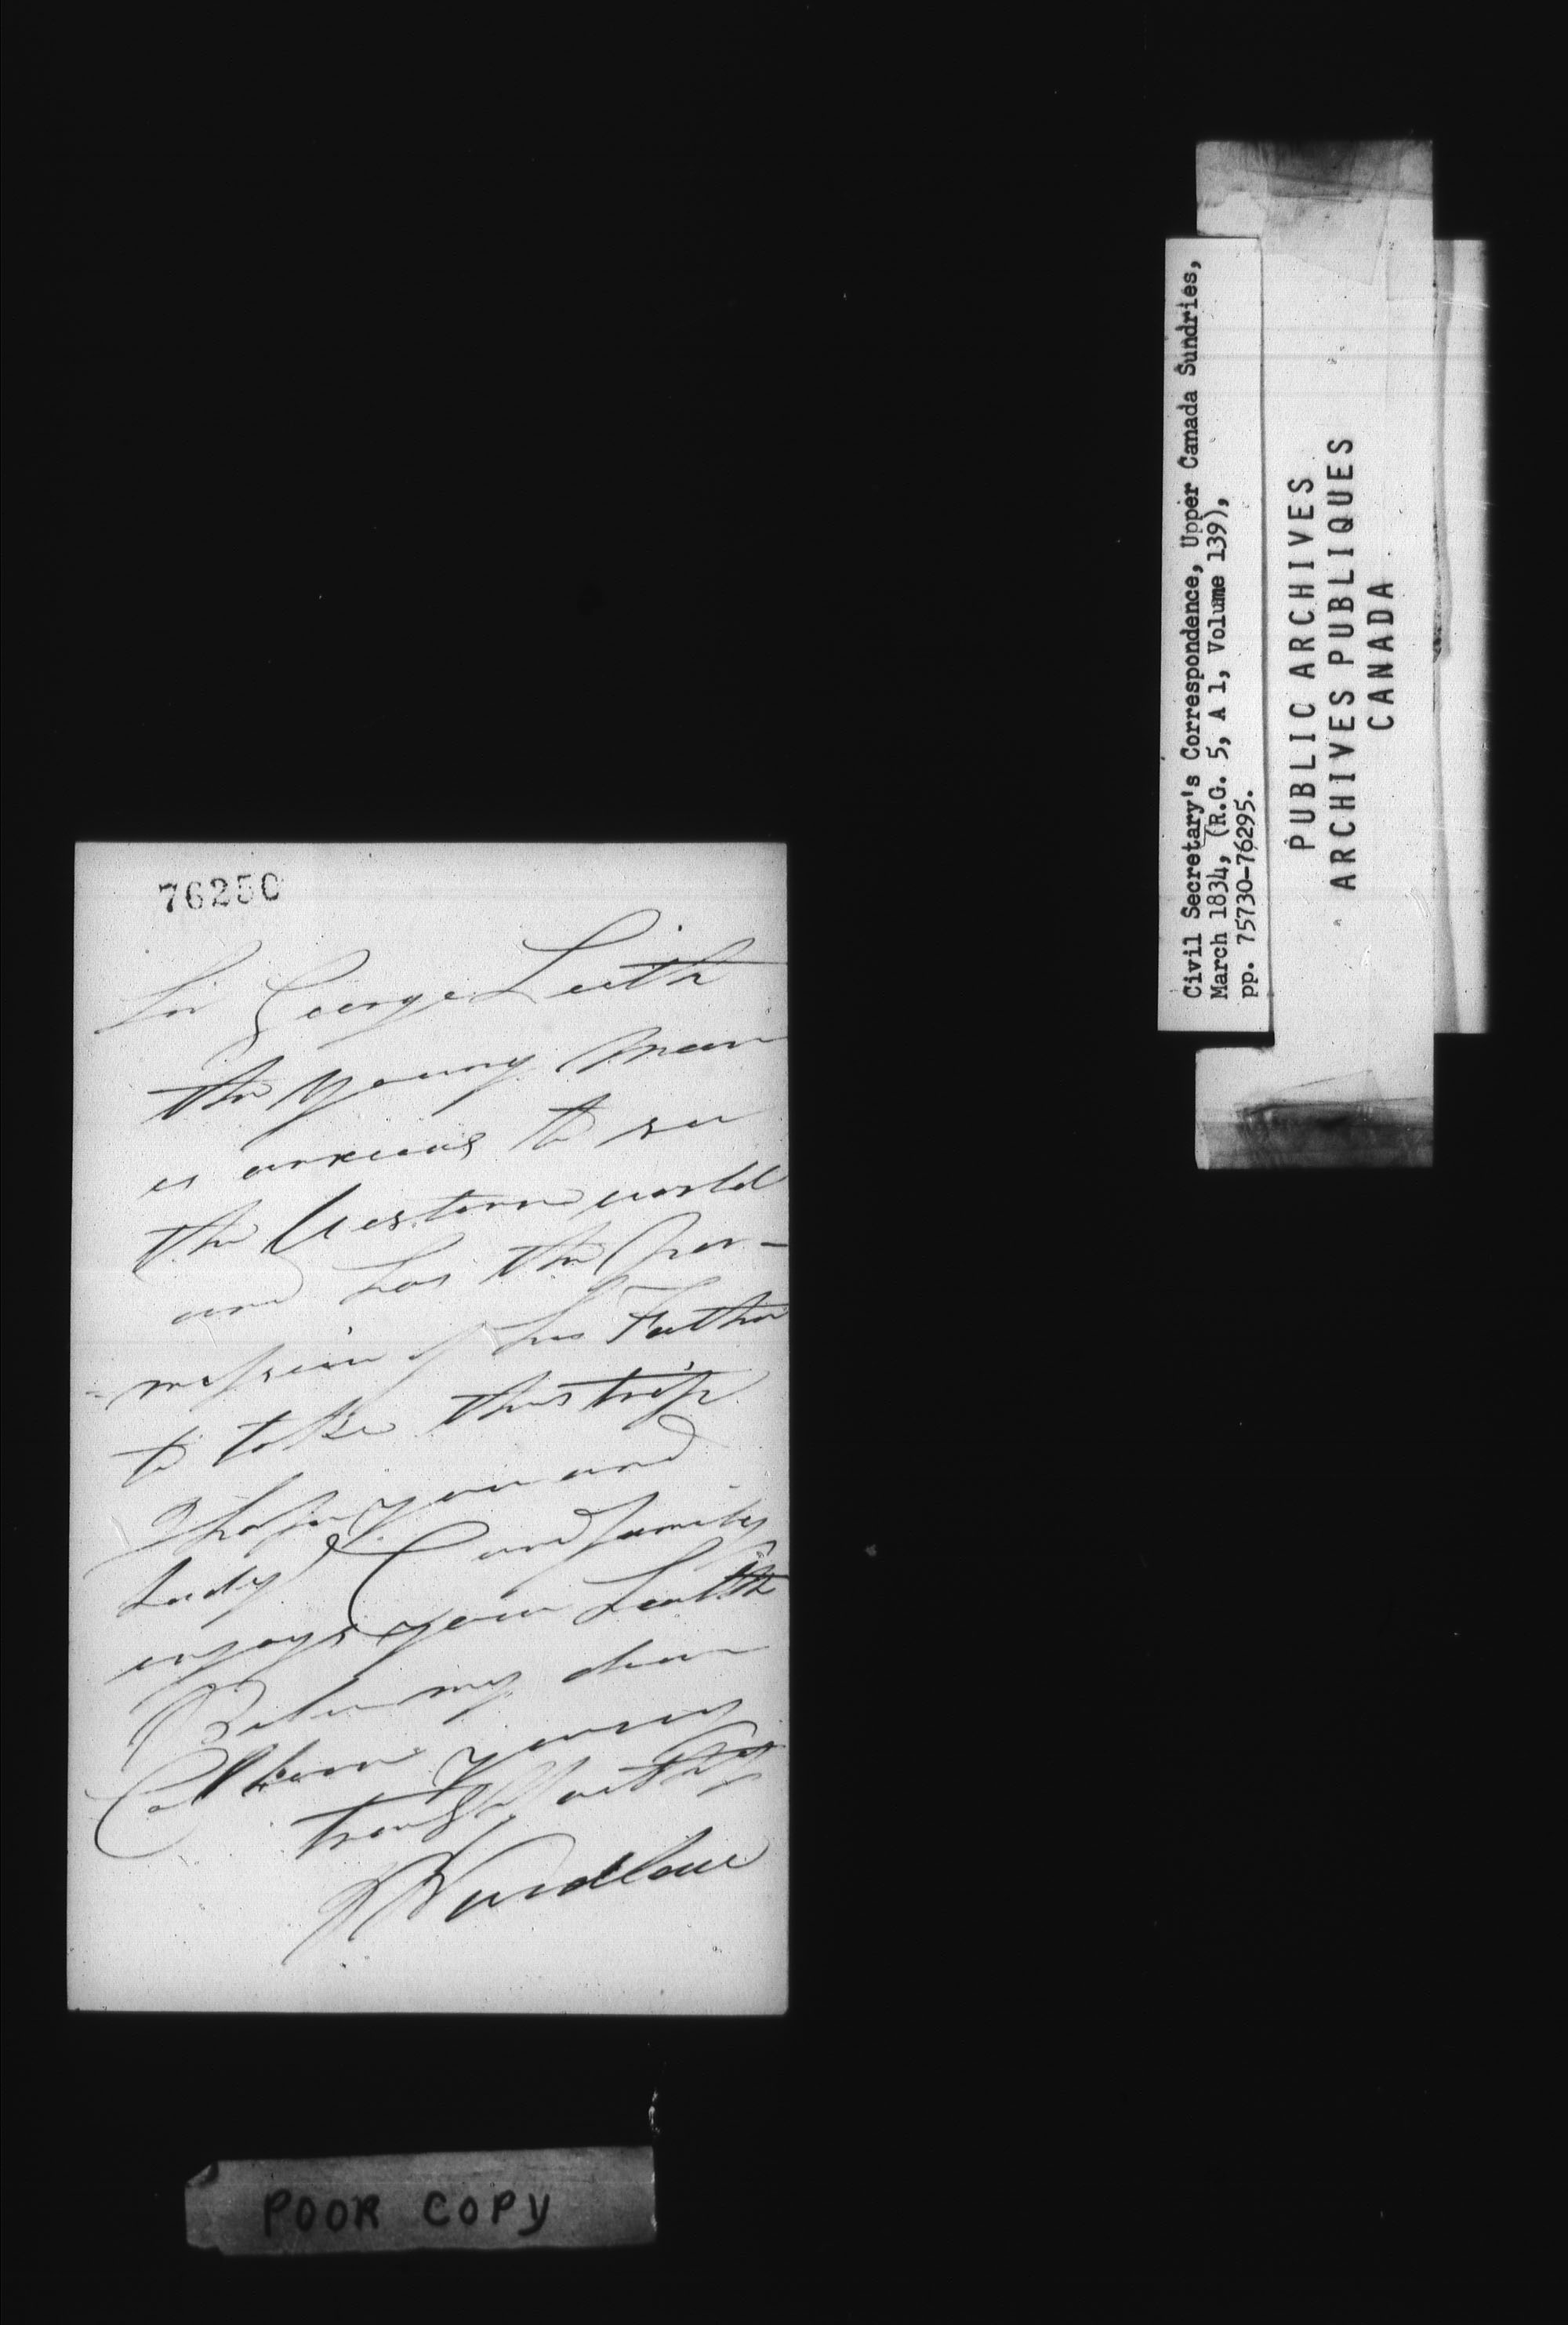 76250
Sir George Leith
the young man
is anxious to see
the Western world
and has the per-
=mission of his Father
to take this trip
I hope you and
Lady C and family
enjoys your health
Believe my dear
Colborne yours
truly & faithfully
Wardlaw
POOR COPY
Civil Secretary's Correspondence, Upper Canada Sundries,
March 1834, (R.G. 5, A 1, Volume 139),
pp. 75730-76295.
PUBLIC ARCHIVES
ARCHIVES PUBLIQUES
CANADA